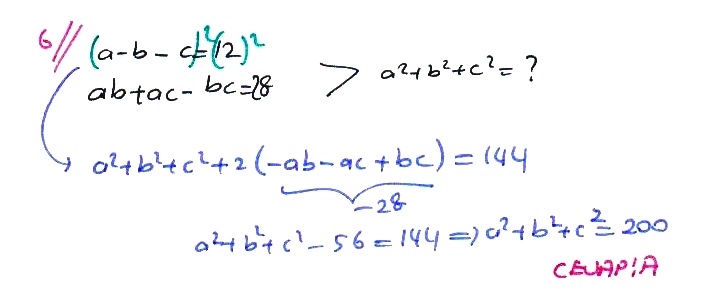 6// (a-b-c)²=(12)²
ab+ac-bc=28 > a²+b²+c²=?
a²+b²+c²+2(-ab-ac+bc)=144
-28
a²+b²+c²-56=144=)a²+b²+c²=200
CEVAP:A